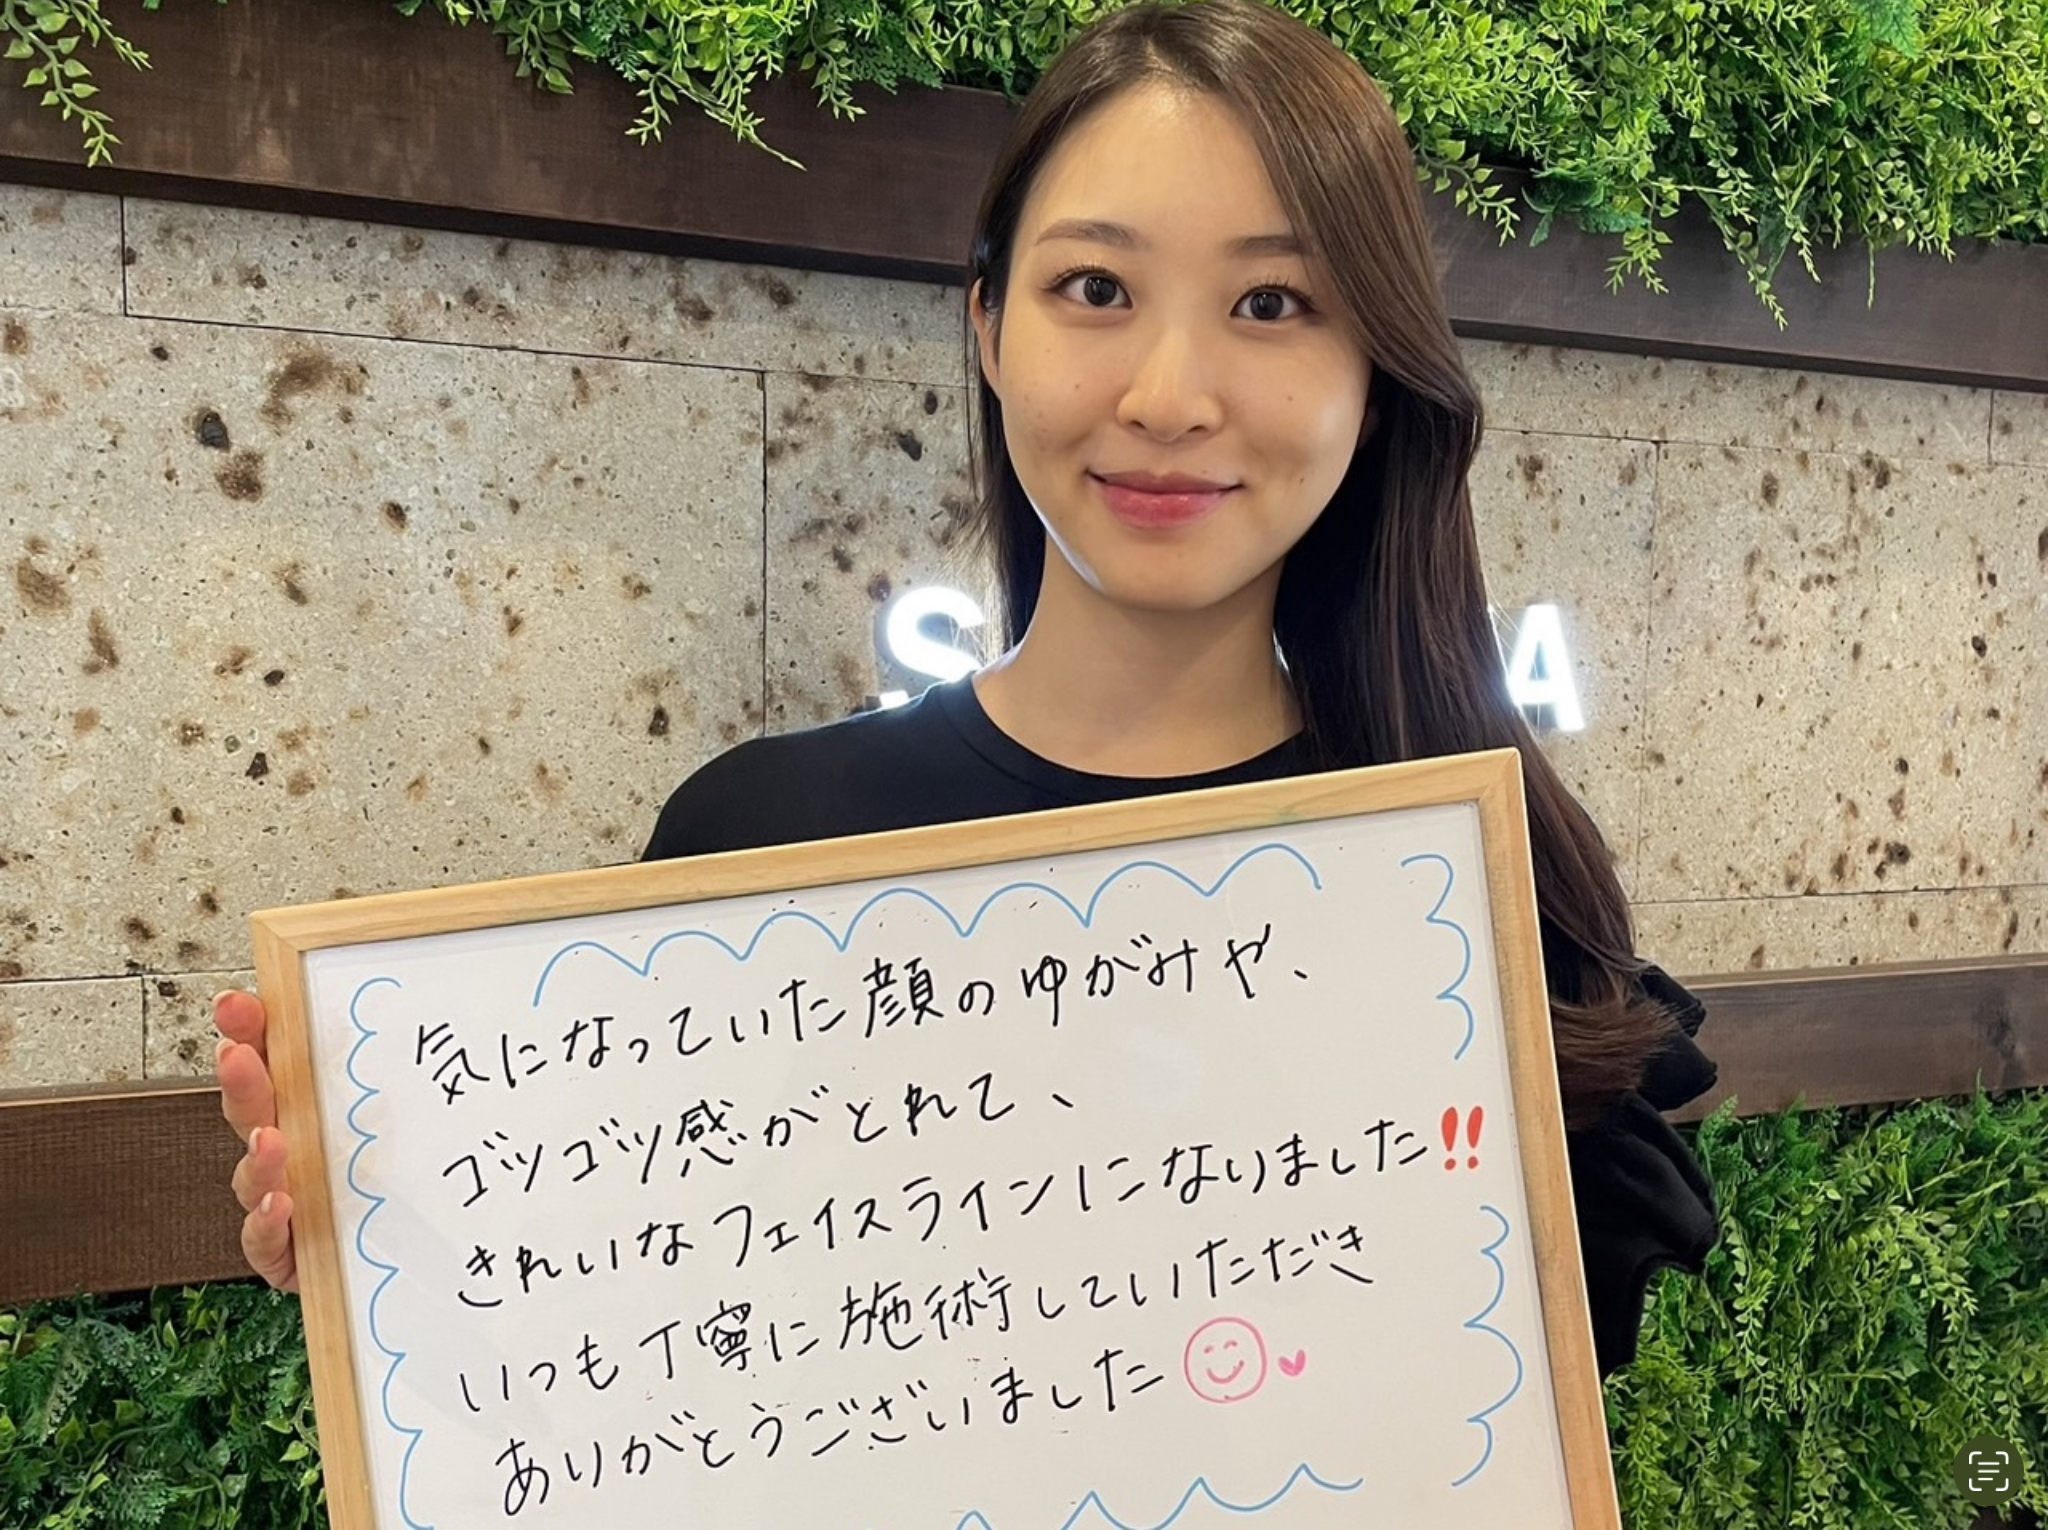 S A
気になっていた顔のゆがみや、
ゴツゴツ感がとれて、
きれいなフェイスラインになりました!!
いつも丁寧に施術していただき
ありがとうございました